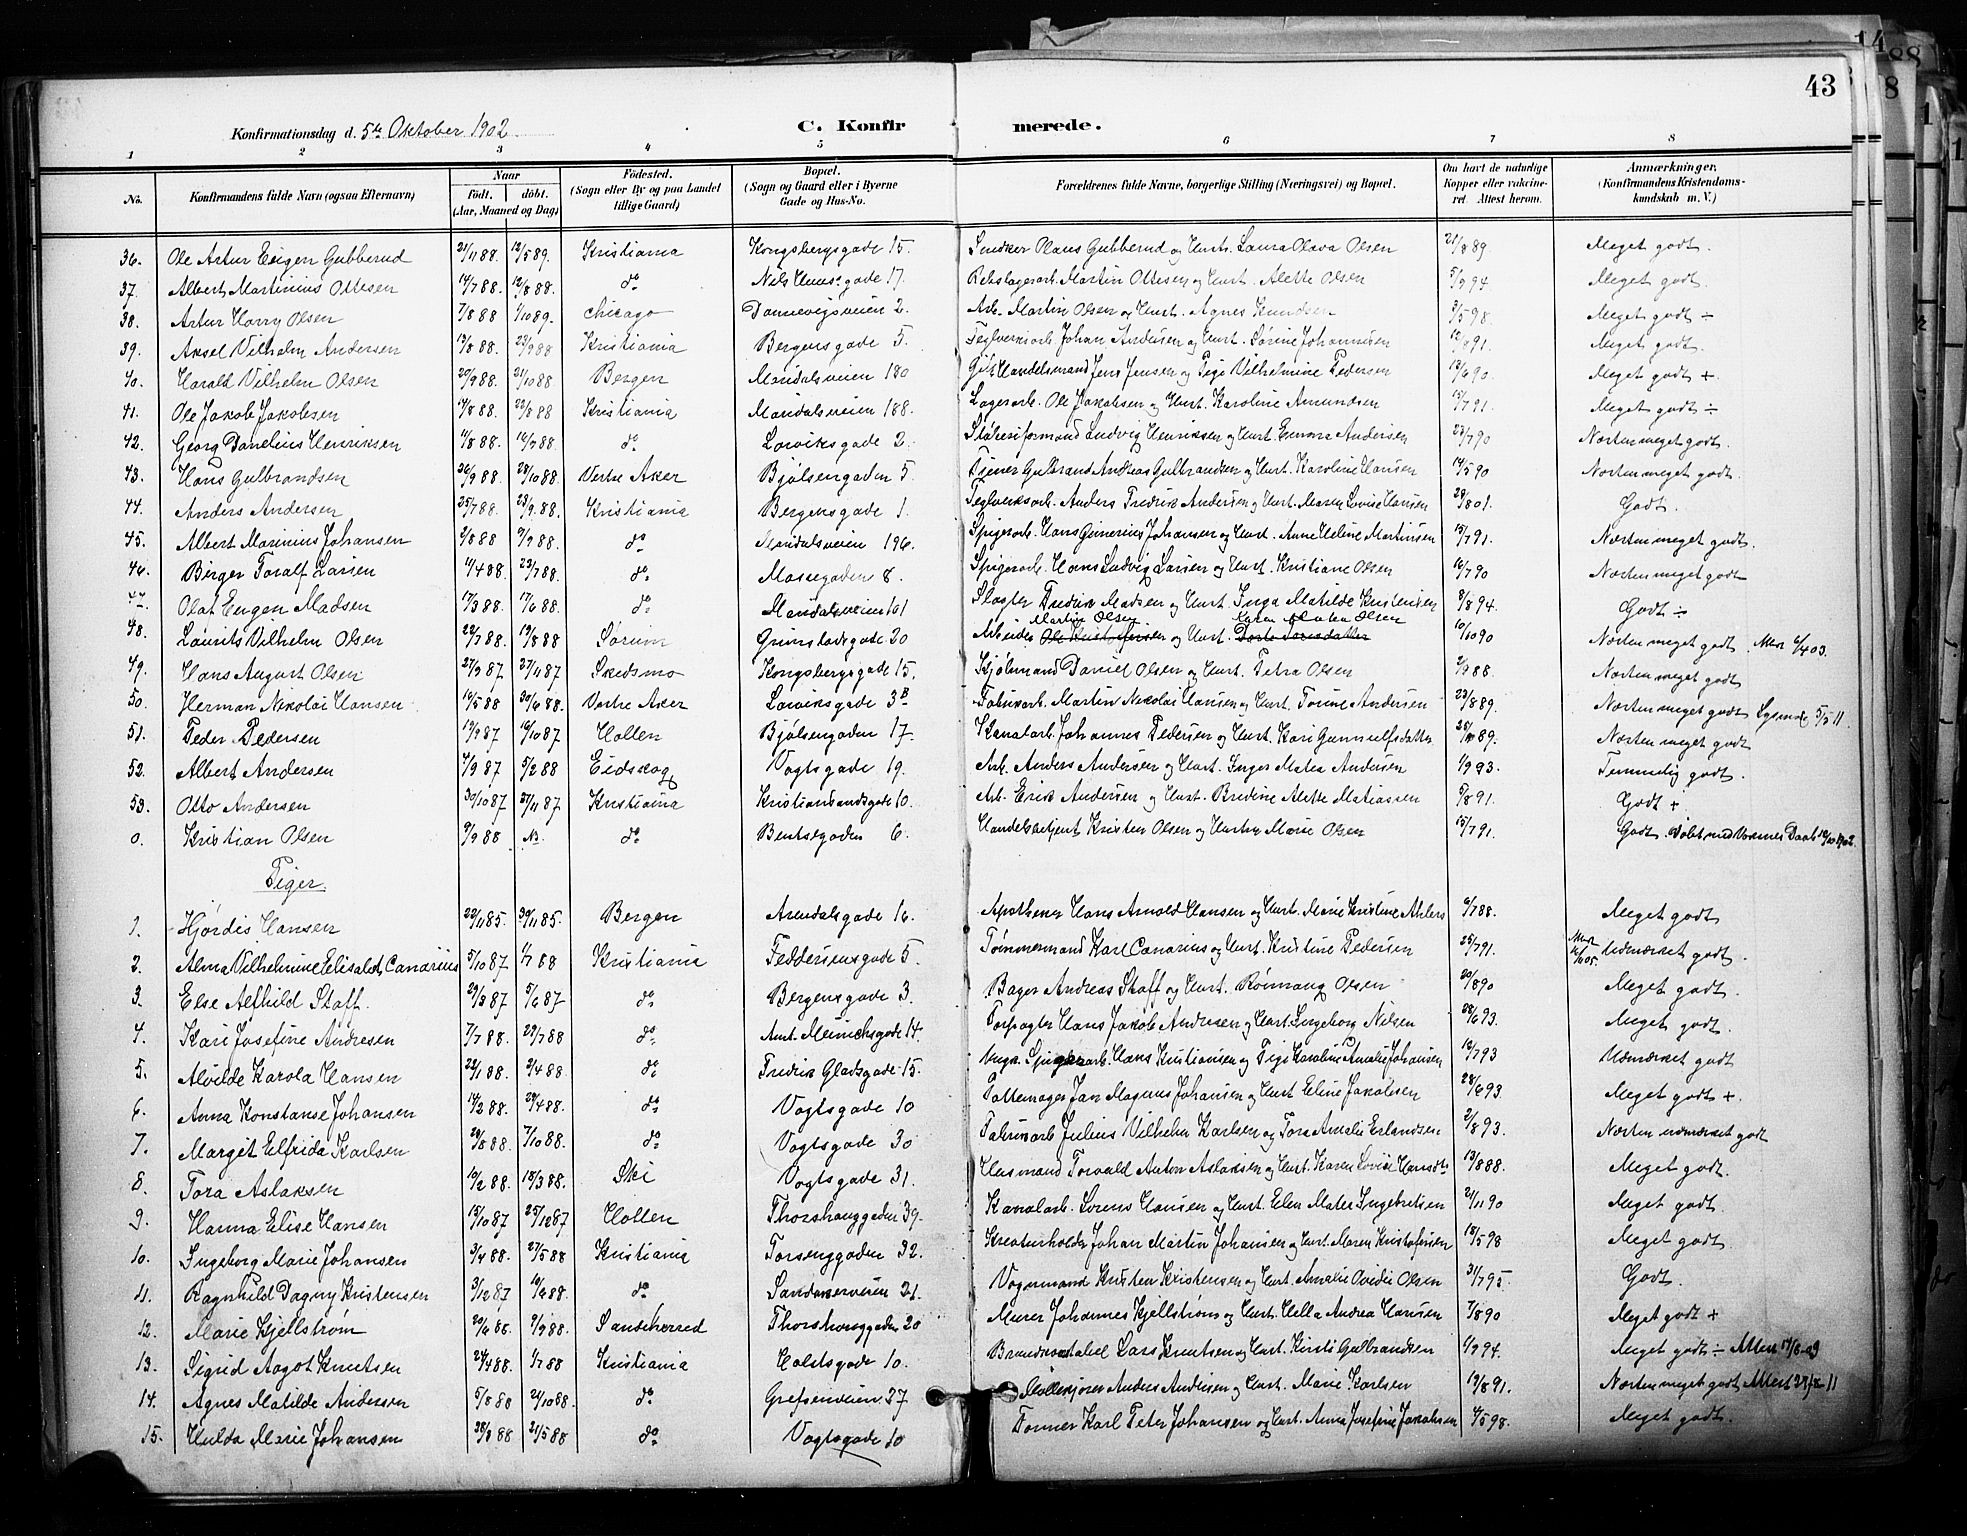 14
88
43
8
1
Konfirmationsdag d. 5te Oktober 1902
C. Konfirmerede.
1 2 3 4 5 6 7 8
No. Konfirmandens fulde Navn (ogsaa Efternavn) Naar født. døbt. (Aar, Maaned og Dag) Fødested. (Sogn eller By og paa Landet tillige Gaard) Bopæl. (Sogn og Gaard eller i Byerne Gade og Hus-No. Forældrenes fulde Navne, borgerlige Stilling (Næringsvei) og Bopæl. Om havt de naturlige Kopper eller vakcineret. Attest herom. Anmærkninger, (Konfirmandens Kristendomskundskab m. V.)
36. Ole Artur Eugen Gubberud 21/11 88. 12/5 89. Kristiania Kongsbergsgade 15. Snedker Olaus Gubberud og Hust. Laura Olava Olsen 21/8 89. Meget godt.
37. Albert Martinius Ottesen 14/7 88. 12/8 88. do Nils Huusgade 17. Rebslagerarb. Martin Ottesen og Hust. Alette Olsen 5/9 94. Meget godt.
38. Artur Harry Olsen 7/8 88 1/10 89. Chicago Dannevigsveien 2. Arb. Martin Olsen og Hust. Agnes Knudsen 3/5 98. Meget godt ÷
39. Aksel Vilhelm Andersen 13/8 88. 23/9 88 Kristiania Bergensgade 5. Teglverksarb. Johan Andersen og Hust. Sørine Johannesen 12/8 91. Meget godt.
40. Harald Vilhelm Olsen 20/9 88. 21/10 88 Bergen Maridalsveien 180 Gift Handelsmand Jens Jensen og Pige Vilhelmine Pedersen 13/6 90. Meget godt +.
41. Ole Jakob Jakobsen 14/8 88. 22/8 88 Kristiania Maridalsveien 188. Lagerarb. Ole Jakobsen og Hust. Karoline Amundsen 13/7 91. Meget godt ÷
42. Georg Danelius Henriksen 11/8 88. 16/7 88. do Larviksgade 2. Støberiformand Ludvig Henriksen og Hust. Emma Andersen 23/7 90 Næsten meget godt.
43. Hans Gulbrandsen 26/9 88 28/10 88 Vestre Aker Bjølsengaden 5. Tjener Gulbrand Andreas Gulbrandsen og Hust. Karoline Hansen 14/5 90 Næsten meget godt.
44. Anders Andersen 25/7 88 23/9 88. Kristiania Bergensgade 1. Teglverksarb. Anders Fredrik Andersen og Hust. Maren Lovise Hansen 29/8 01. Godt.
45. Albert Marinius Johansen 2/8 88 9/9 88. do Maridalsveien 196. Spigerarb. Hans Ginerius Johansen og Hust. Anne Helene Martinsen 13/7 91. Næsten meget godt.
46. Birger Toralf Larsen 11/4 88. 23/7 88 do Mossegaden 8. Spigerarb. Hans Ludvig Larsen og Hust. Kristiane Olsen 16/7 90 Næsten meget godt
47. Olaf Eugen Madsen 17/3 88. 17/6 88. do Maridalsveien 101 Slagter Fredrik Madsen og Hust. Inga Matilde Kristensen 8/8 94. Godt ÷
Martin Olsen Karen Matea Olsen
48. Laurits Vilhelm Olsen 22/7 88. 19/8 88 Sørum Grimstadsgade 20 Arbeider Ole Kristoffersen og Hust. Dorte Toresdatter 10/10 90 Næsten meget godt. Attest 6/4 03.
49. Hans August Olsen 27/9 87 27/11 87 Skedsmo Kongsbergsgade 15. Kjølemand Daniel Olsen og Hust. Petra Olsen 2/9 88. Næsten meget godt
50. Herman Nikolai Hansen 16/5 88 30/6 88. Vestre Aker Larviksgade 3B Fabrikarb. Martin Nikolai Hansen og Hust. Torine Andersen 23/8 89. Næsten meget godt 5/5 11.
51. Peder Pedersen 19/9 87 16/10 87 Hollen Bjølsengaden 17 Kanalarb. Johannes Pedersen og Hust. Kari Gunnulfsdatter 89. Næsten meget godt
52. Albert Andersen 4/9 87 5/2 88 Eidskog Vogtsgade 19. Arb. Anders Andersen og Hust. Inger Matea Andersen 1/9 93. Temmelig godt.
53. Otto Andersen 30/10 87 27/11 87 Kristiania Kristiansandsgade 10. Arb. Erik Andersen og Hust. Bredine Alette Matiassen 5/8 91. Godt +
0. Kristian Olsen 9/9 88 No. do Bentsegaden 6. Handelsbetjent Kristen Olsen og Hustru Marie Olsen 15/7 91. Godt. Døbt med Voksnes Daab 12/10 1902.
Piger.
1. Hjørdis Hansen 22/11 85. 30/11 85. Bergen Arendalsgade 16. Apotheker Hans Arnold Hansen og Hust. Marie Kristine Ahlers 6/7 88. Meget godt
2. Alma Vilhelmine Elisabet Canarius 5/10 87 1/1 88 Kristiania Feddersensgade 5. Tømmermand Karl Canarius og Hust. Kristine Pedersen 25/7 91. Attest Udmærket godt.
3. Else Alfhild Staff. 23/3 87 5/6 87 do Bergensgade 3. Bager Andreas Staff og Hust. Rønnaug Olsen 20/8 90 Meget godt.
4. Kari Josefine Andresen 7/7 88. 22/7 88 do Amt. Meinichsgade 14. Forpagter Hans Jakob Andresen og Hust. Ingeborg Nilsen 28/6 93. Meget godt.
5. Alvilde Karola Hansen 22/1 88. 2/4 88. do Fredrik Gladsgade 15. Ungk. Spigerarb. Hans Kristiansen og Pige Karoline Amalie Johansen 13/7 93 Udmærket godt
6. Anna Konstanse Johansen 14/2 88. 29/4 88. do Vogtsgade 10 Pottemager Jan Magnus Johansen og Hust Eline Jakobsen 28/6 93. Meget godt +.
7. Margit Elfrida Karlsen 20/8 88. 7/10 88. do Vogtsgade 30 Fabrikarb Julius Vilhelm Karlsen og Tora Amalie Erlandsen 2/8 93. Næsten udmærket godt
8. Tora Aslaksen 10/2 88. 18/3 88. Ski Vogtsgade 31. Husmand Torvald Anton Aslaksen og Hust. Karen Lovise Hansdtr 13/8 88. Meget godt.
9. Hanna Elise Hansen 15/10 87 25/12 87 Hollen Thorshauggaden 39. Kanalarb. Lorens Hansen og Hust. Elen Matea Ingebretsen 21/11 90 Meget godt.
10. Ingeborg Marie Johansen 3/4 88. 27/5 88 Kristiania Torsenggaden 32. Kreaturholder Johan Martin Johansen og Hust. Maren Kristofersen 18/5 98 Meget godt.
11. Ragnhild Dagny Kristensen 3/12 87 10/6 88. do Sandakerveien 21. Vognmand Kristen Kristensen og Hust. Amalie Ovidie Olsen 31/7 95. Godt.
12. Marie Kjellstrøm 20/6 88. 9/9 88. Sandeherred Thorshauggaden 20 Murer Johannes Kjellstrøm og Hust. Hella Andrea Hansen 7/8 90 Meget godt +
13. Sigrid Aagot Knutsen 24/4 88. 1/7 88 Kristiania Holstsgade 10. Brandkonstabel Lars Knutsen og Hust. Kirsti Gulbrandsen 6/9 94. Meget godt ÷ Attest
14. Agnes Matilde Andersen 5/8 88 21/10 88. do Grefsenveien 27 Møllekjører Anders Andersen og Hust. Marie Karlsen 19/8 91. Næsten meget godt Attest 11
15. Hulda Marie Johansen 28/3 88 21/5 88 do Vogtsgade 10 Former Karl Peter Johansen og Hust. Anna Josefine Jakobsen 4/5 98. Meget godt.